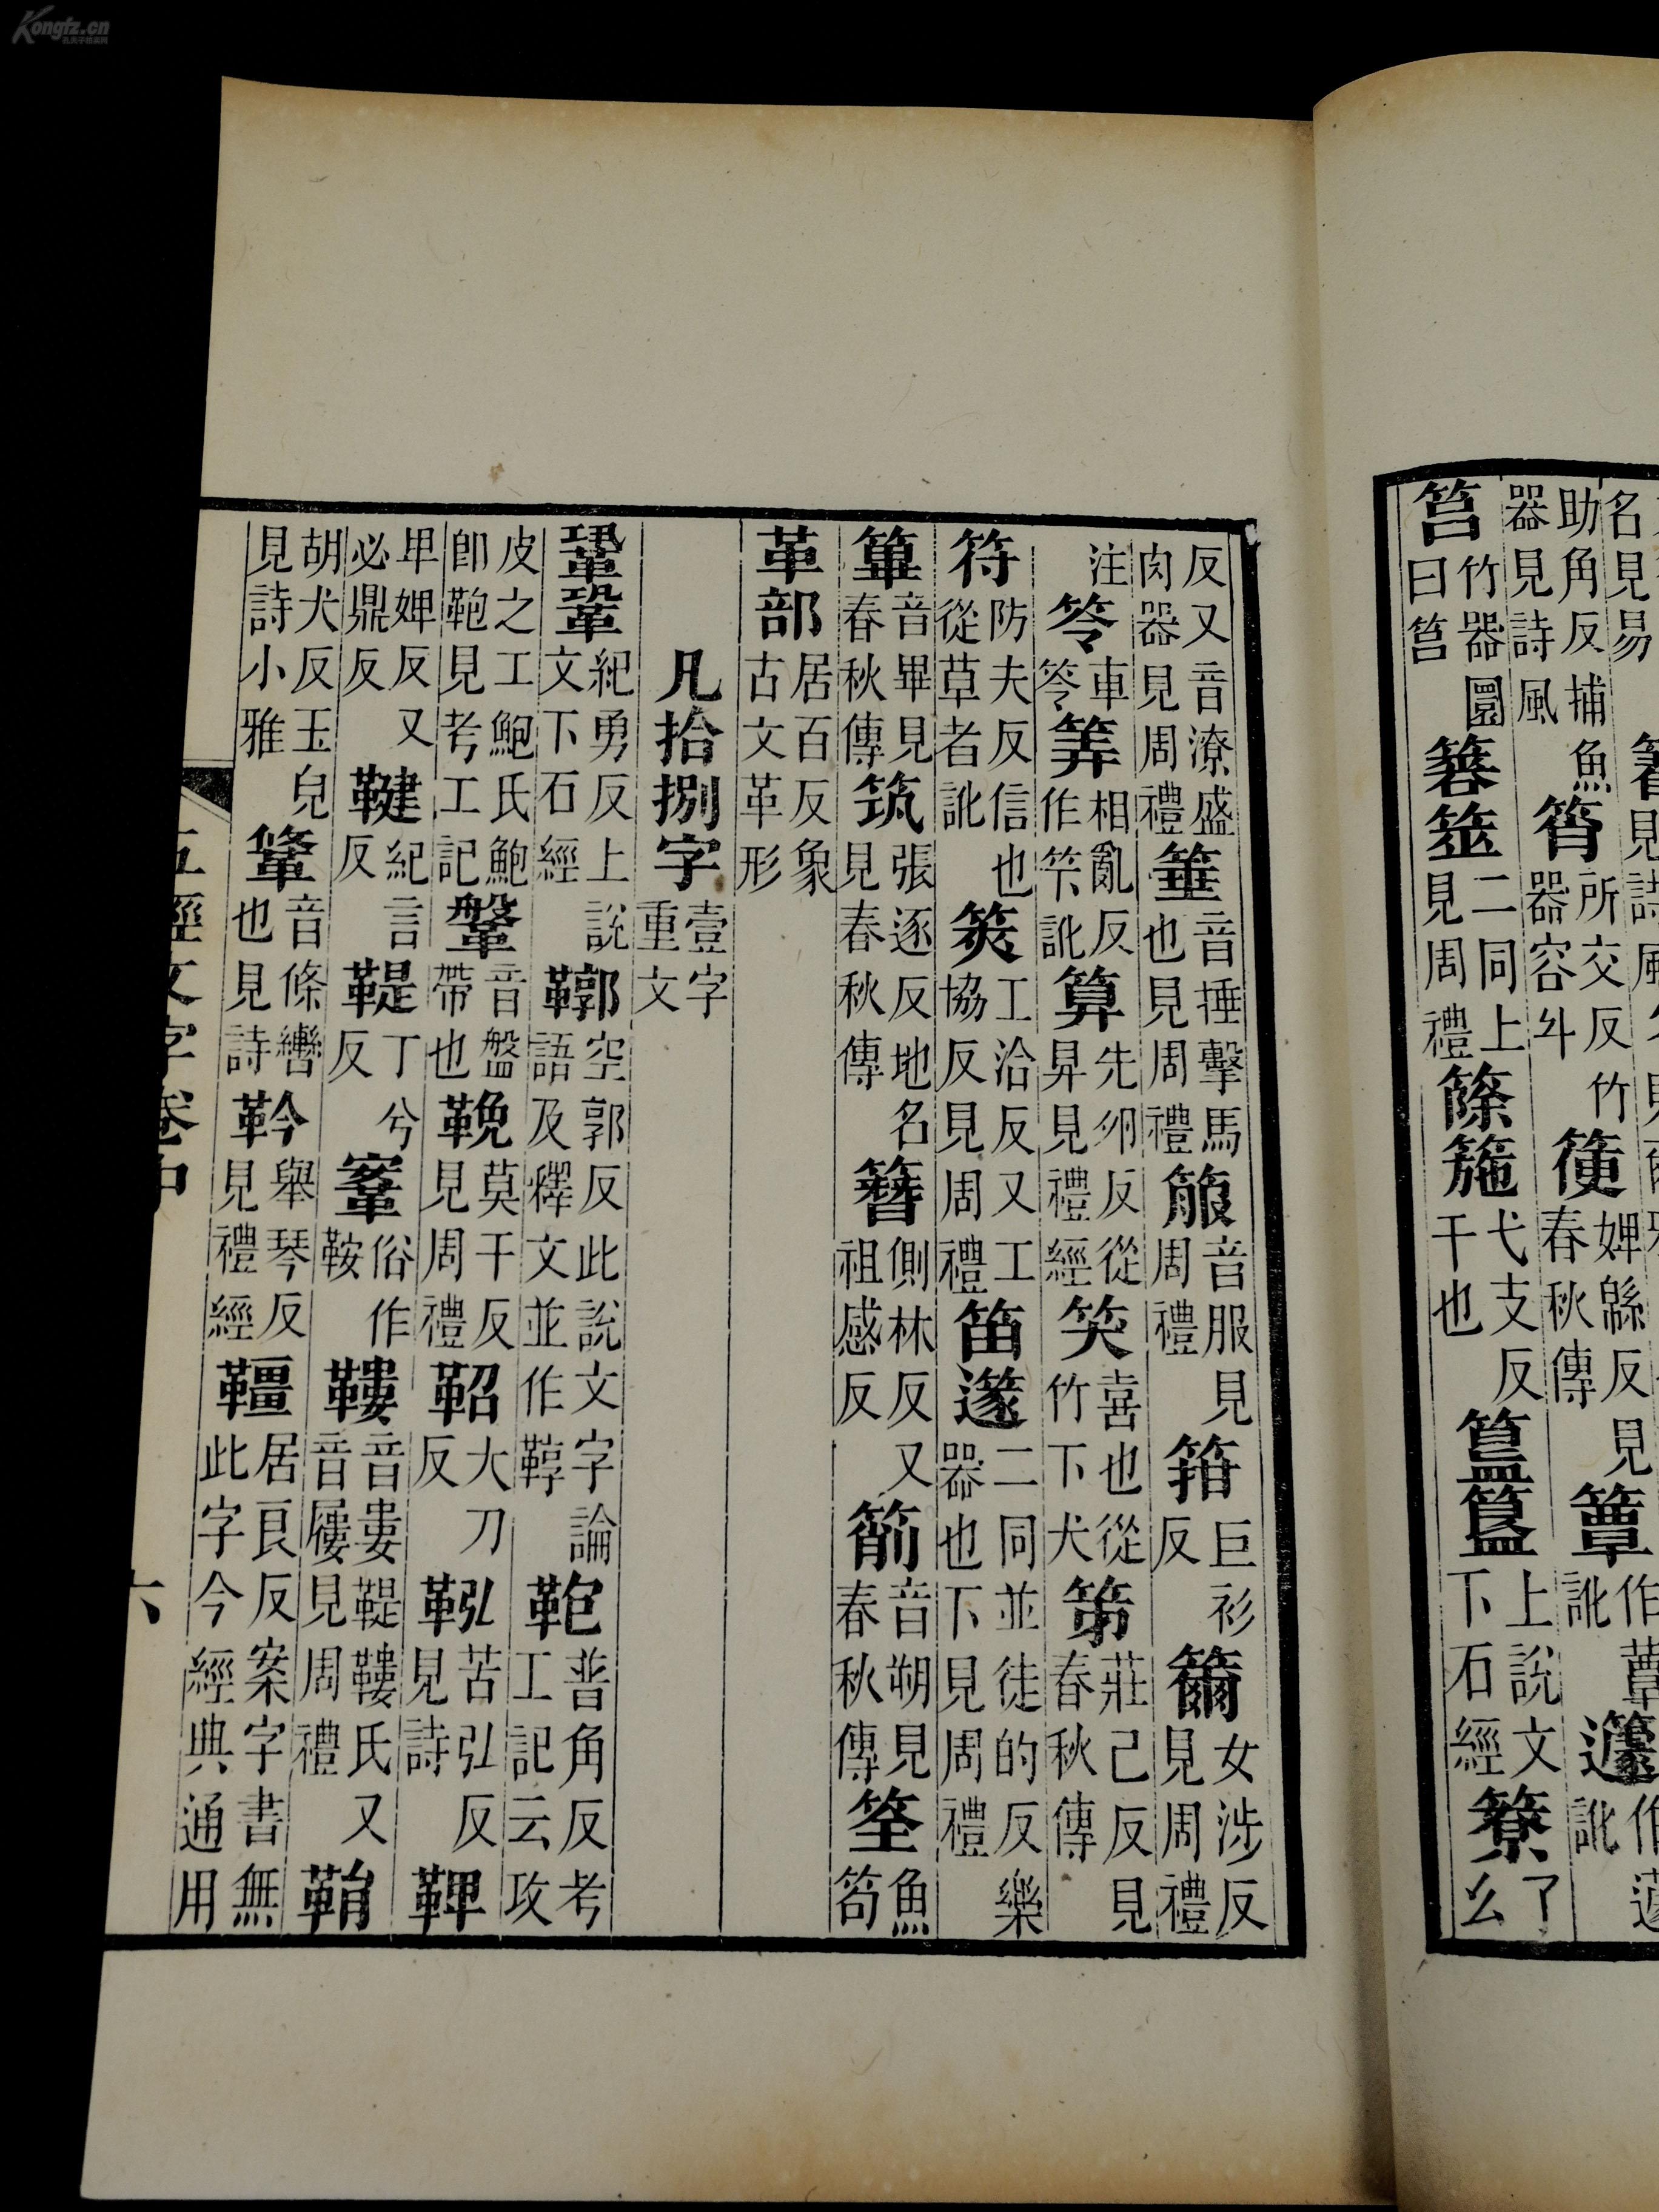 助角反捕魚器見詩風筲所交反竹器容斗箯婢緜反見春秋傳簟作蕈訛籧作蘧訛
筥竹器圓曰筥簭筮二同上見周禮篨箷弋支反干也簋上說文下石經簝了么
反又音潦盛肉器見周禮箠音捶擊馬也見周禮箙音服見周禮箝巨衫反籋女涉反見周禮
注笭車笭筭相亂反作竿訛算先夘反從昇見禮經笑喜也從竹下犬笫莊己反見春秋傳
符防夫反信也從草者訛筴工洽反又工協反見周禮笛篴二同並徒的反樂器也下見周禮
篳音畢見春秋傳筑張逐反地名見春秋傳簪側林反又祖感反箾音朔見春秋傳筌魚笱
革部居百反象古文革形
凡拾捌字壹字重文
鞏鞏紀勇反上說文下石經鞹空郭反此說文字論語及釋文並作鞟鞄普角反考工記云攻
皮之工鮑氏鮑卽鞄見考工記鞶音盤帶也鞔莫干反見周禮鞀大刀反鞃苦弘反見詩鞞
卑婢反又必鼎反鞬紀言反鞮丁兮反鞌俗作鞍鞻音婁鞮鞻氏又音屨見周禮鞙
胡犬反玉皃見詩小雅鞗音條轡也見詩靲舉琴反見禮經韁居良反案字書無此字今經典通用
五經文字卷中 六
Kongfz.cn